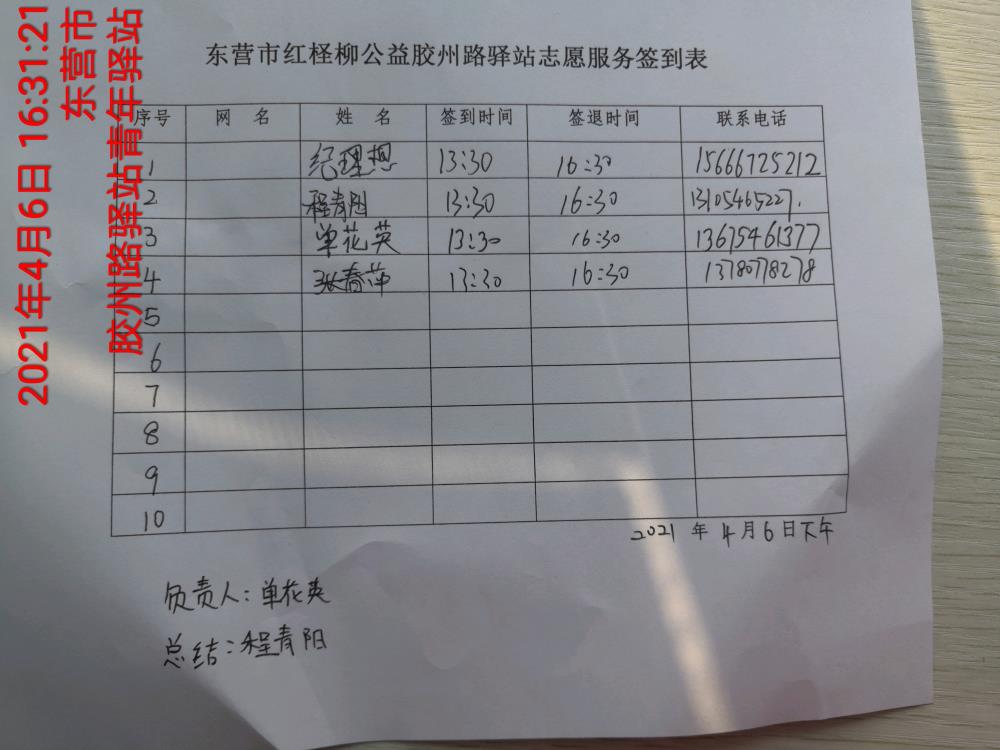 2021年4月6日 16:31:21
东营市
胶州路驿站青年驿站
东营市红柽柳公益胶州路驿站志愿服务签到表
序号 网 名 姓 名 签到时间 签退时间 联系电话
1 纪理想 13:30 16:30 15666725212
2 程青阳 13:30 16:30 13105465227.
3 单花英 13:30 16:30 13675461377
4 张春萍 13:30 16:30 13780778278
5
6
7
8
9
10
2021 年 4月6日下午
负责人:单花英
总结:程青阳